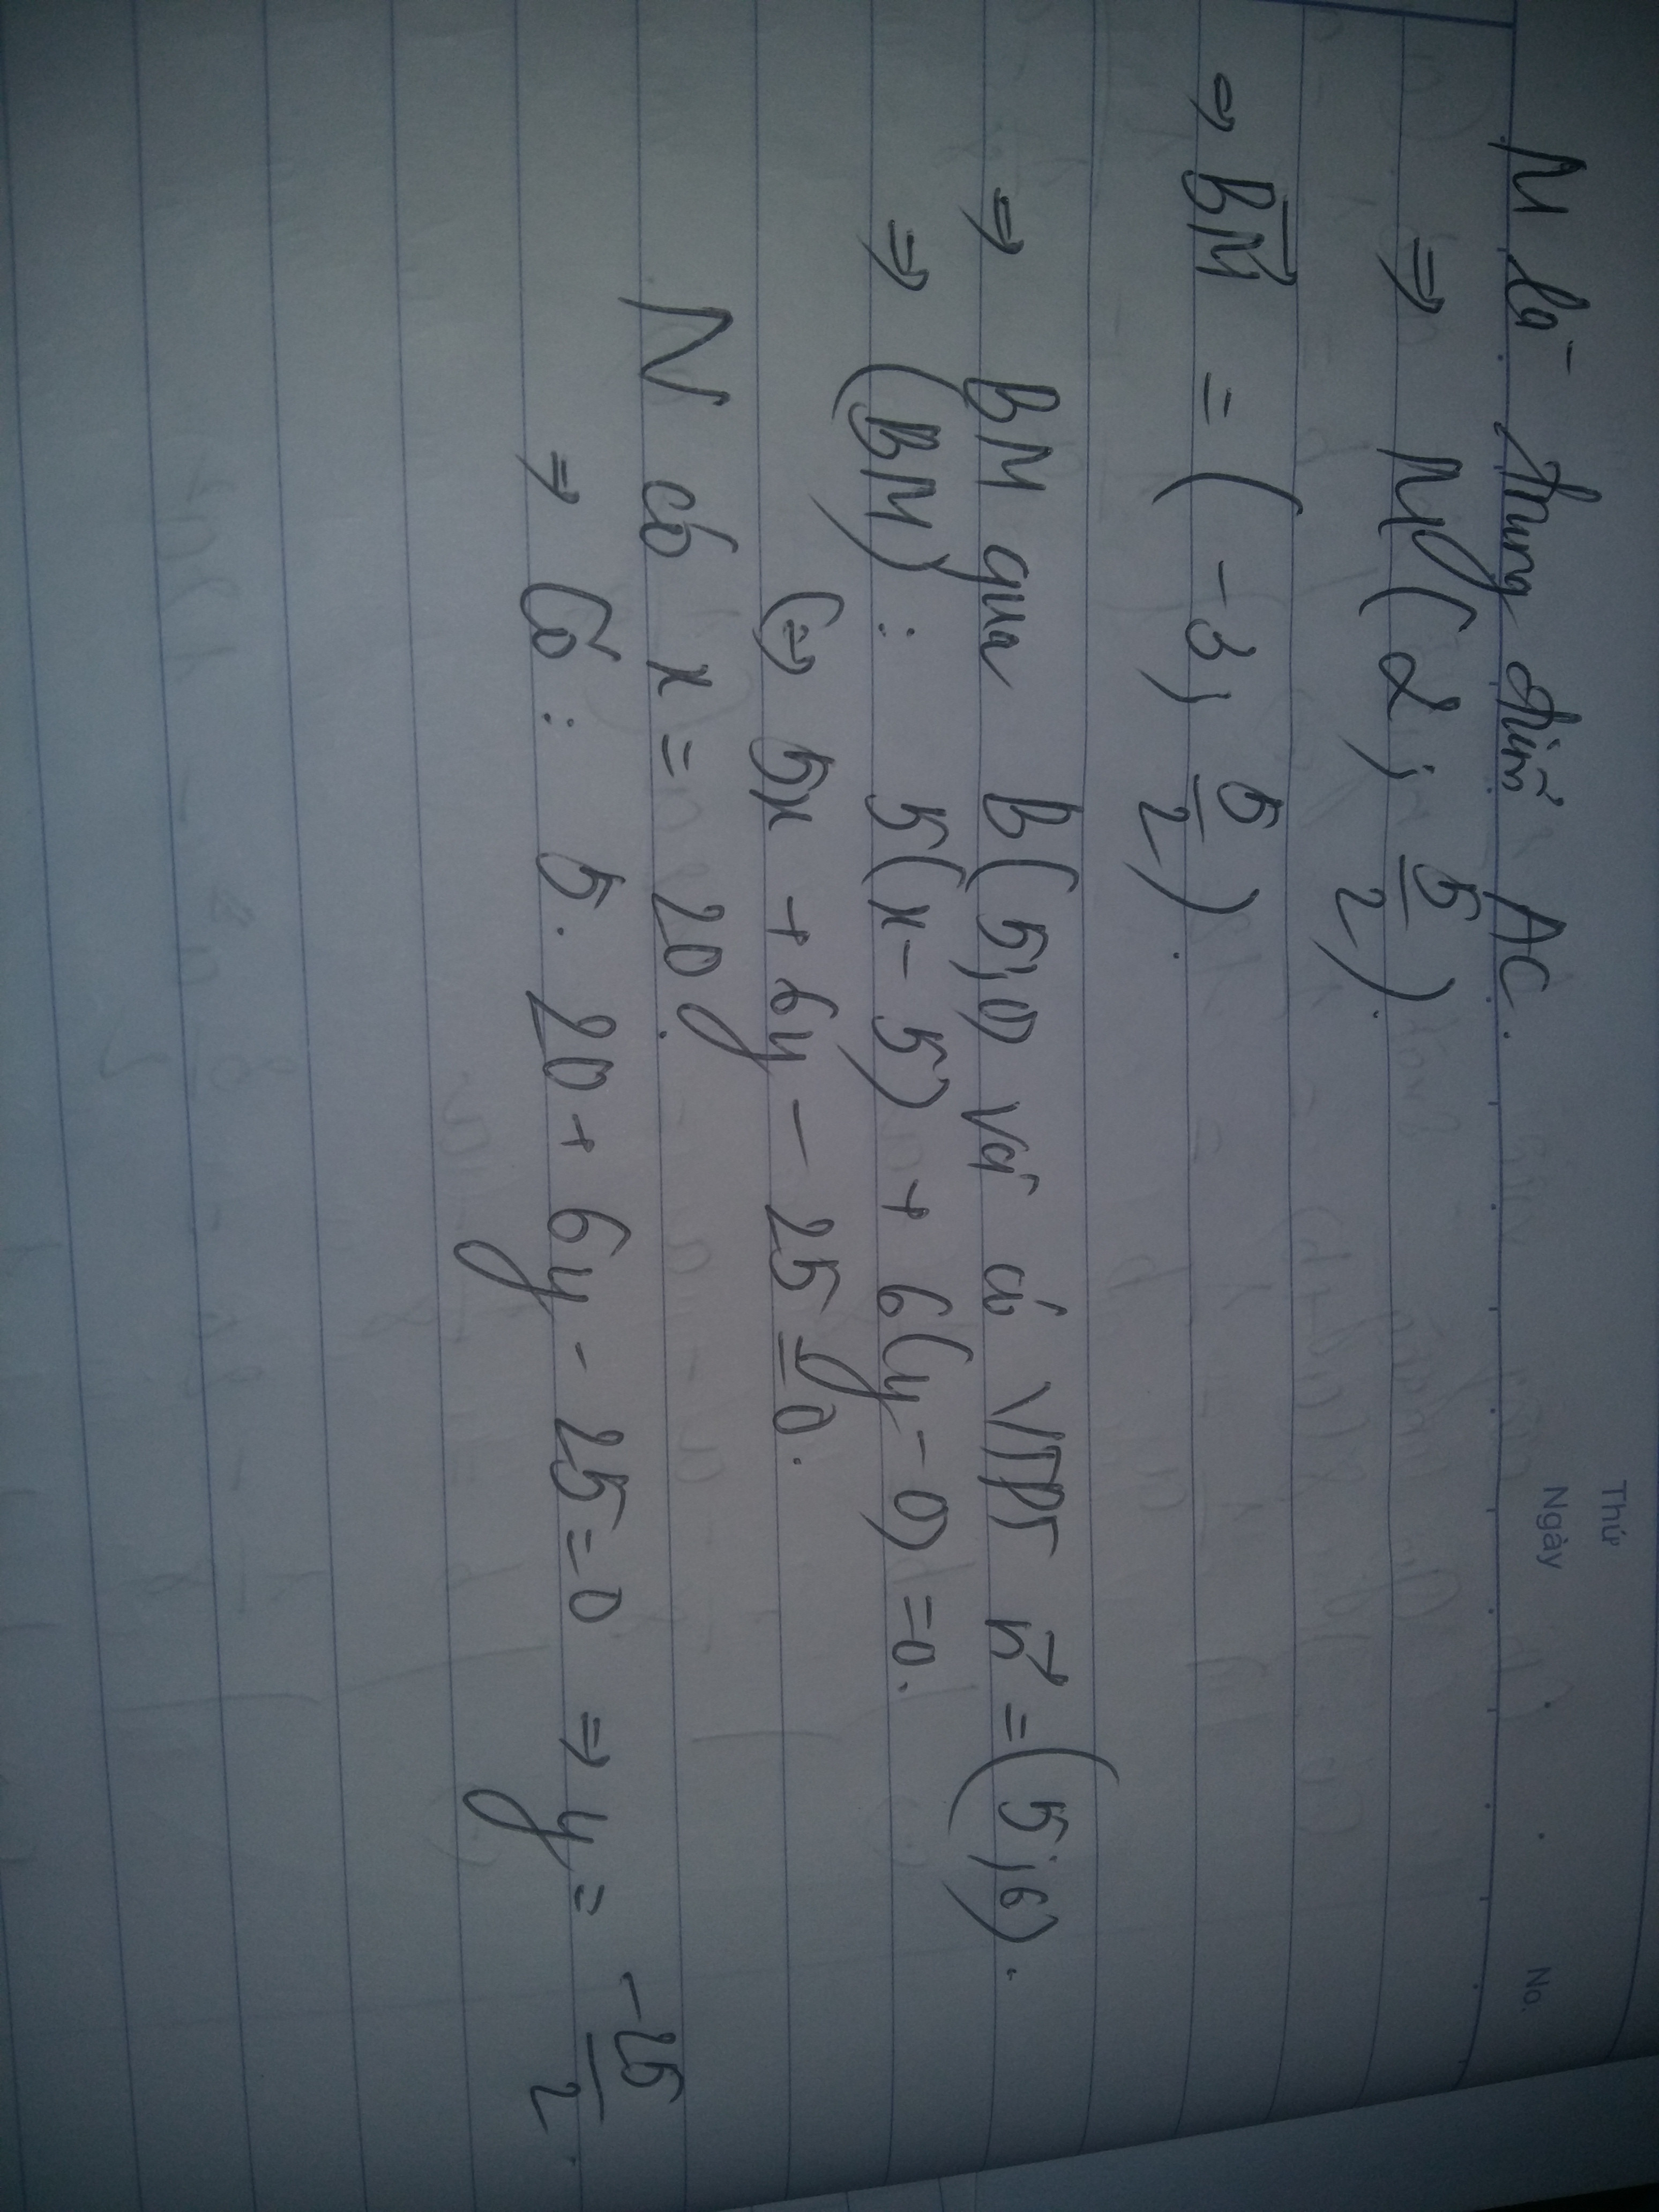 Thứ
Ngày
No.
M là trung điểm AC.
⇒ M(2; 5/2).
⇒ BM = (-3; 5/2).
⇒ BM qua B(5;0) và có VTPT n = (5;6).
⇒ (BM): 5(x-5) + 6(y-0) = 0.
(⇒) 5x + 6y - 25 = 0.
N có x = 20
⇒ Có: 5. 20 + 6y - 25 = 0 ⇒ y = -25/2.